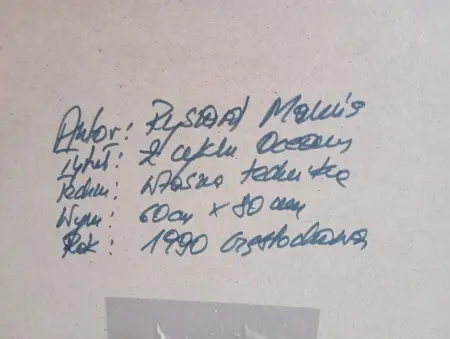 Autor: Ryszard
Tytuł: z cyklu Oceany
Techn: własna technika
Wym: 60cm x 80cm
Rok: 1990 Częstochowa